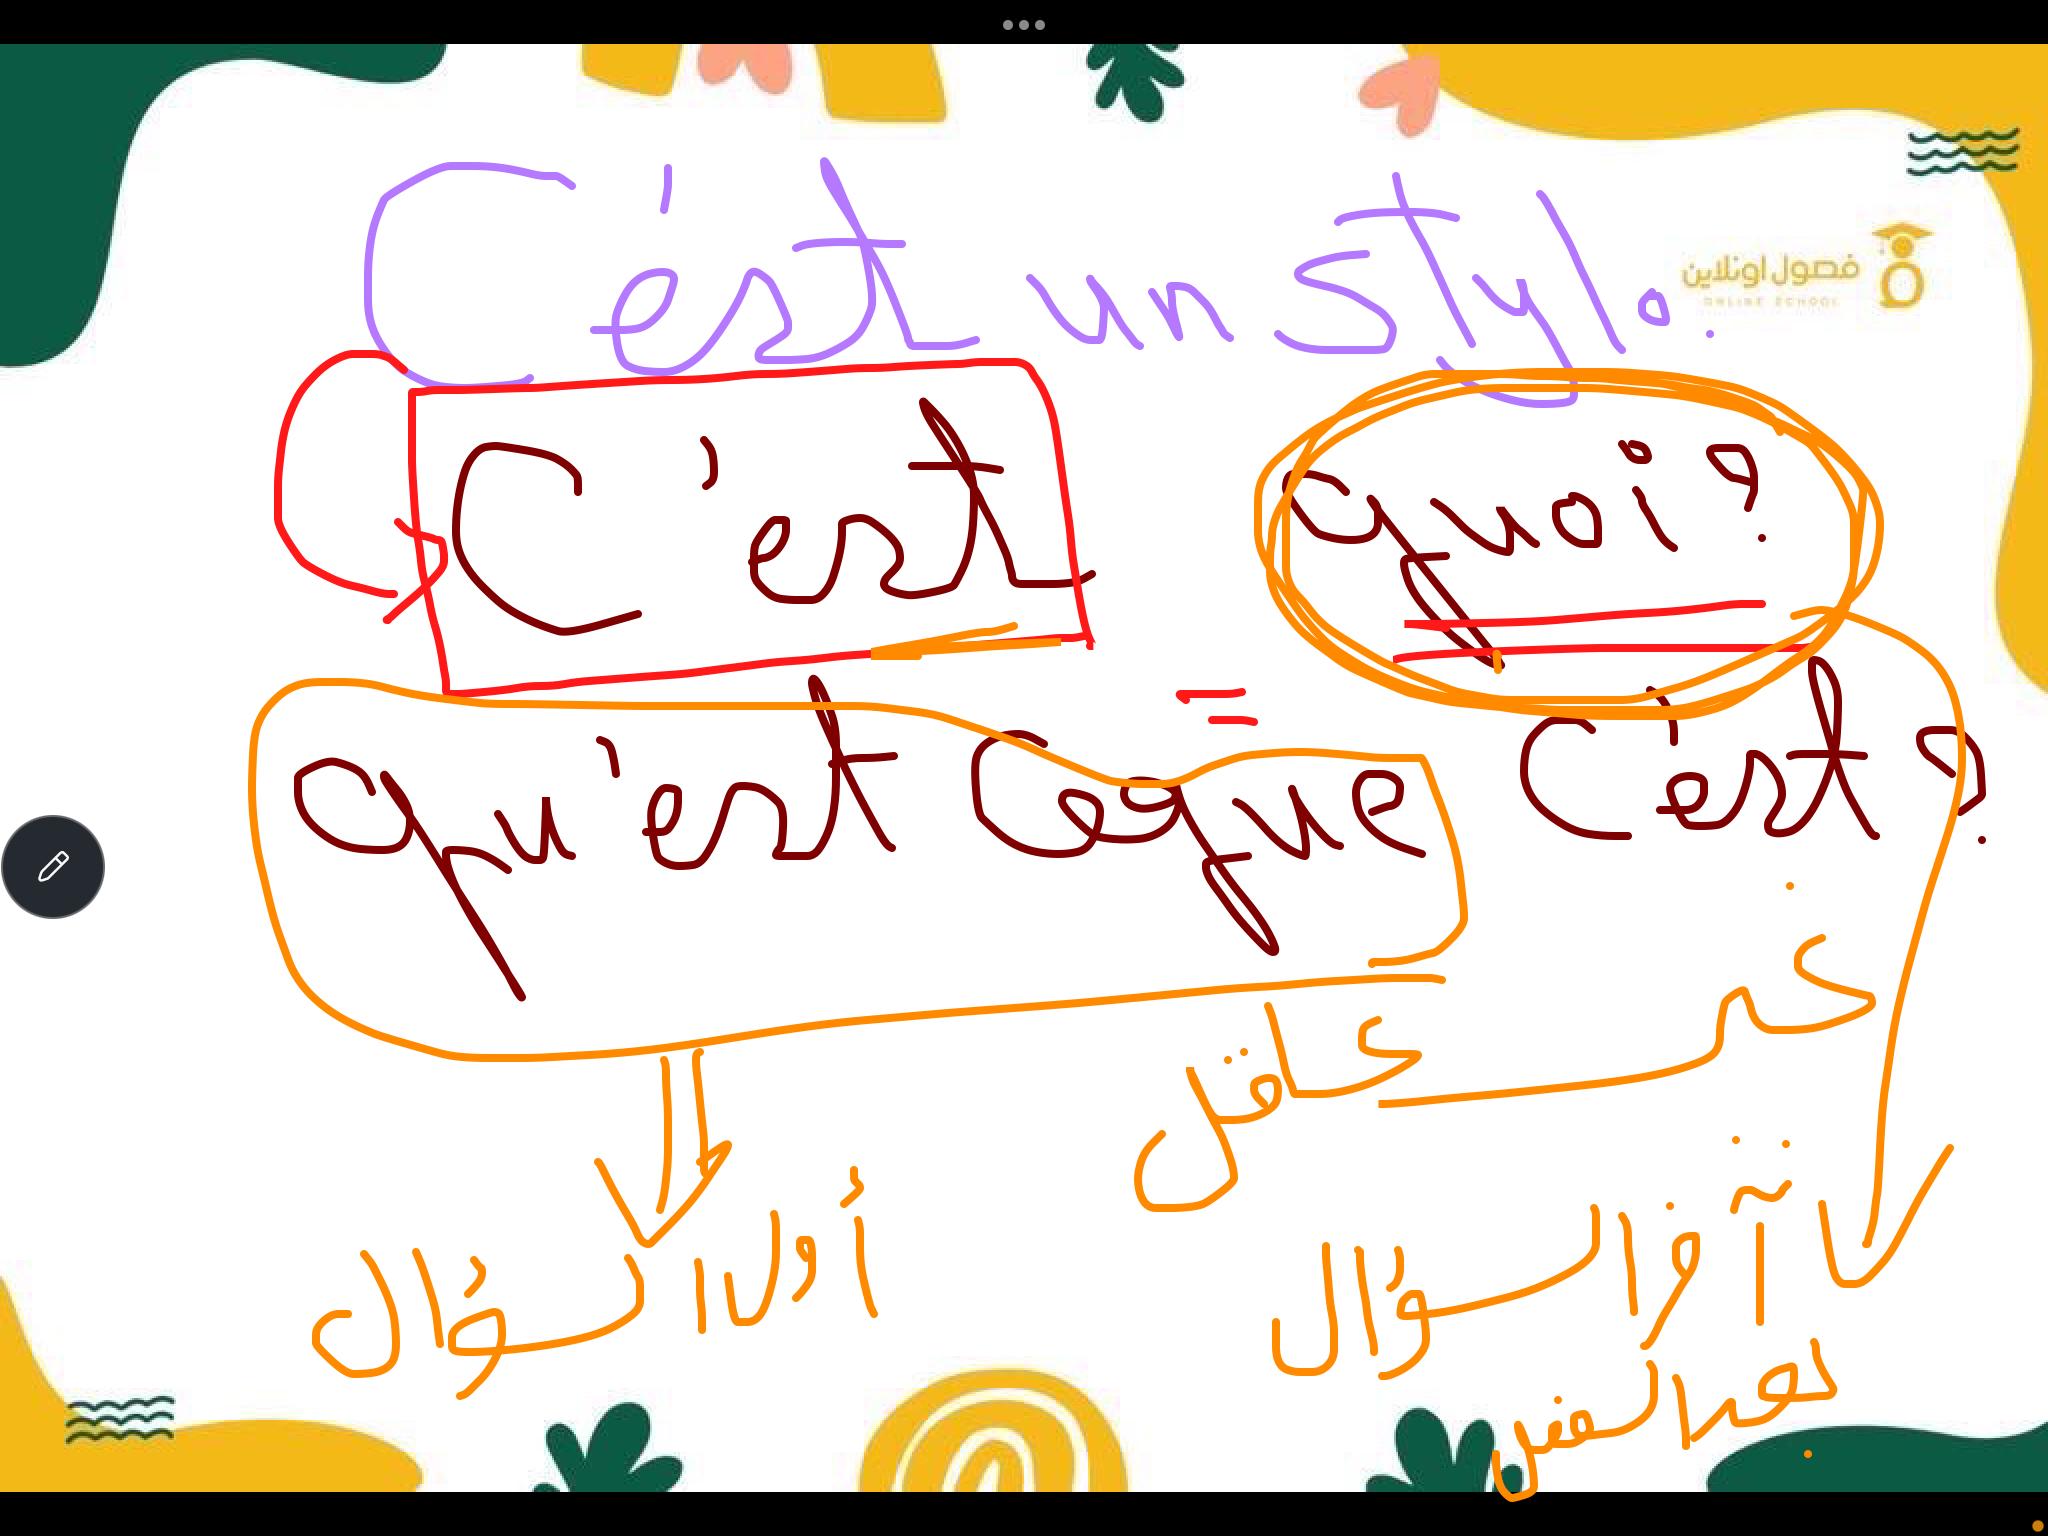 C'est un stylo.
فصول اونلاين
ONLINE SCHOOL
C'est quoi?
=
qu'est ce que C'est?
غير عاقل
أول السؤال
آخر السؤال